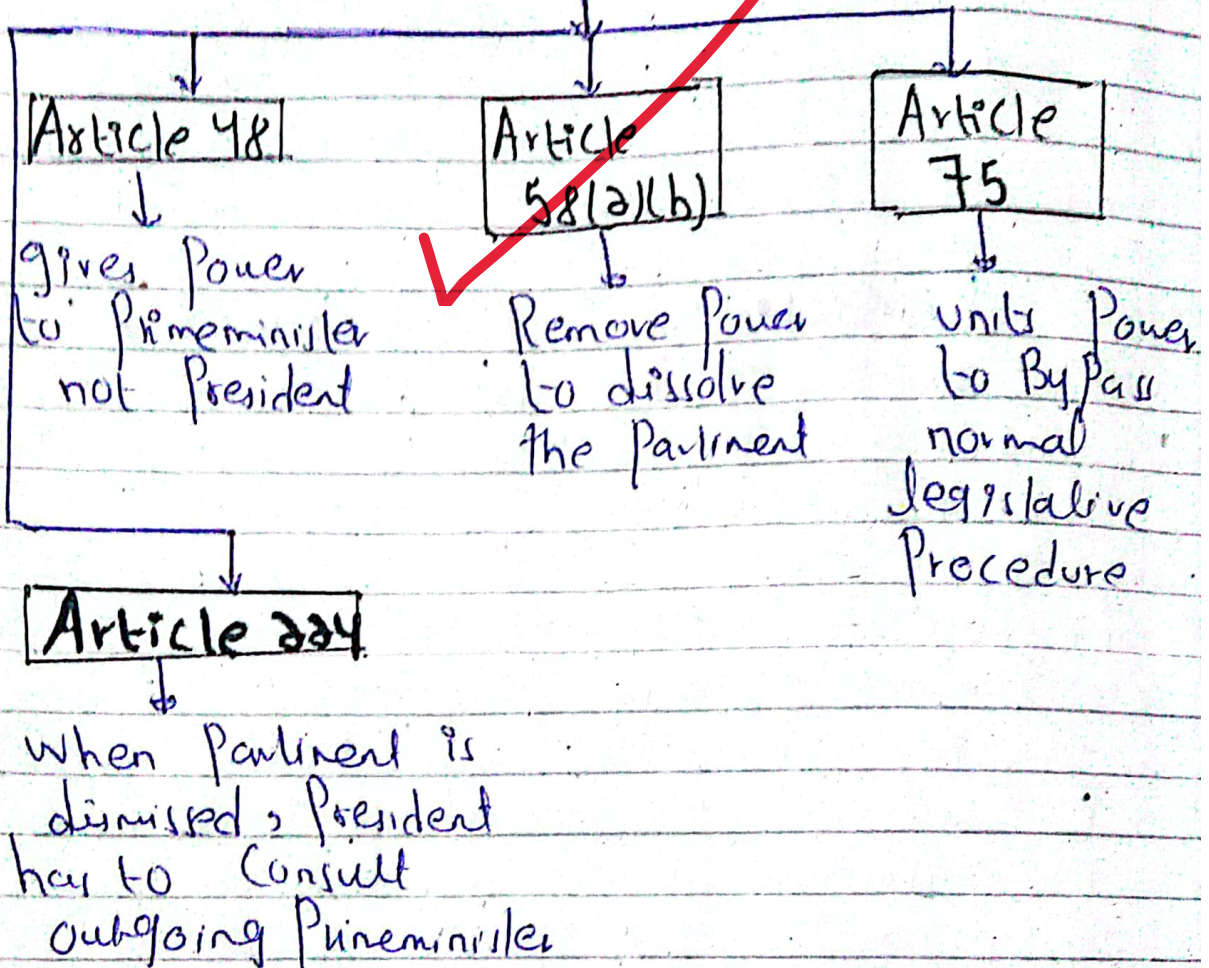 Article 48
gives Power
to Primeminister
not President
Article
58(2)(b)
Remove Power
to dissolve
the Parliment
Article
75
units Power
to ByPass
normal
legislative
Procedure
Article 224
when Parliment is
dismissed, President
has to Consult
outgoing Primeminister